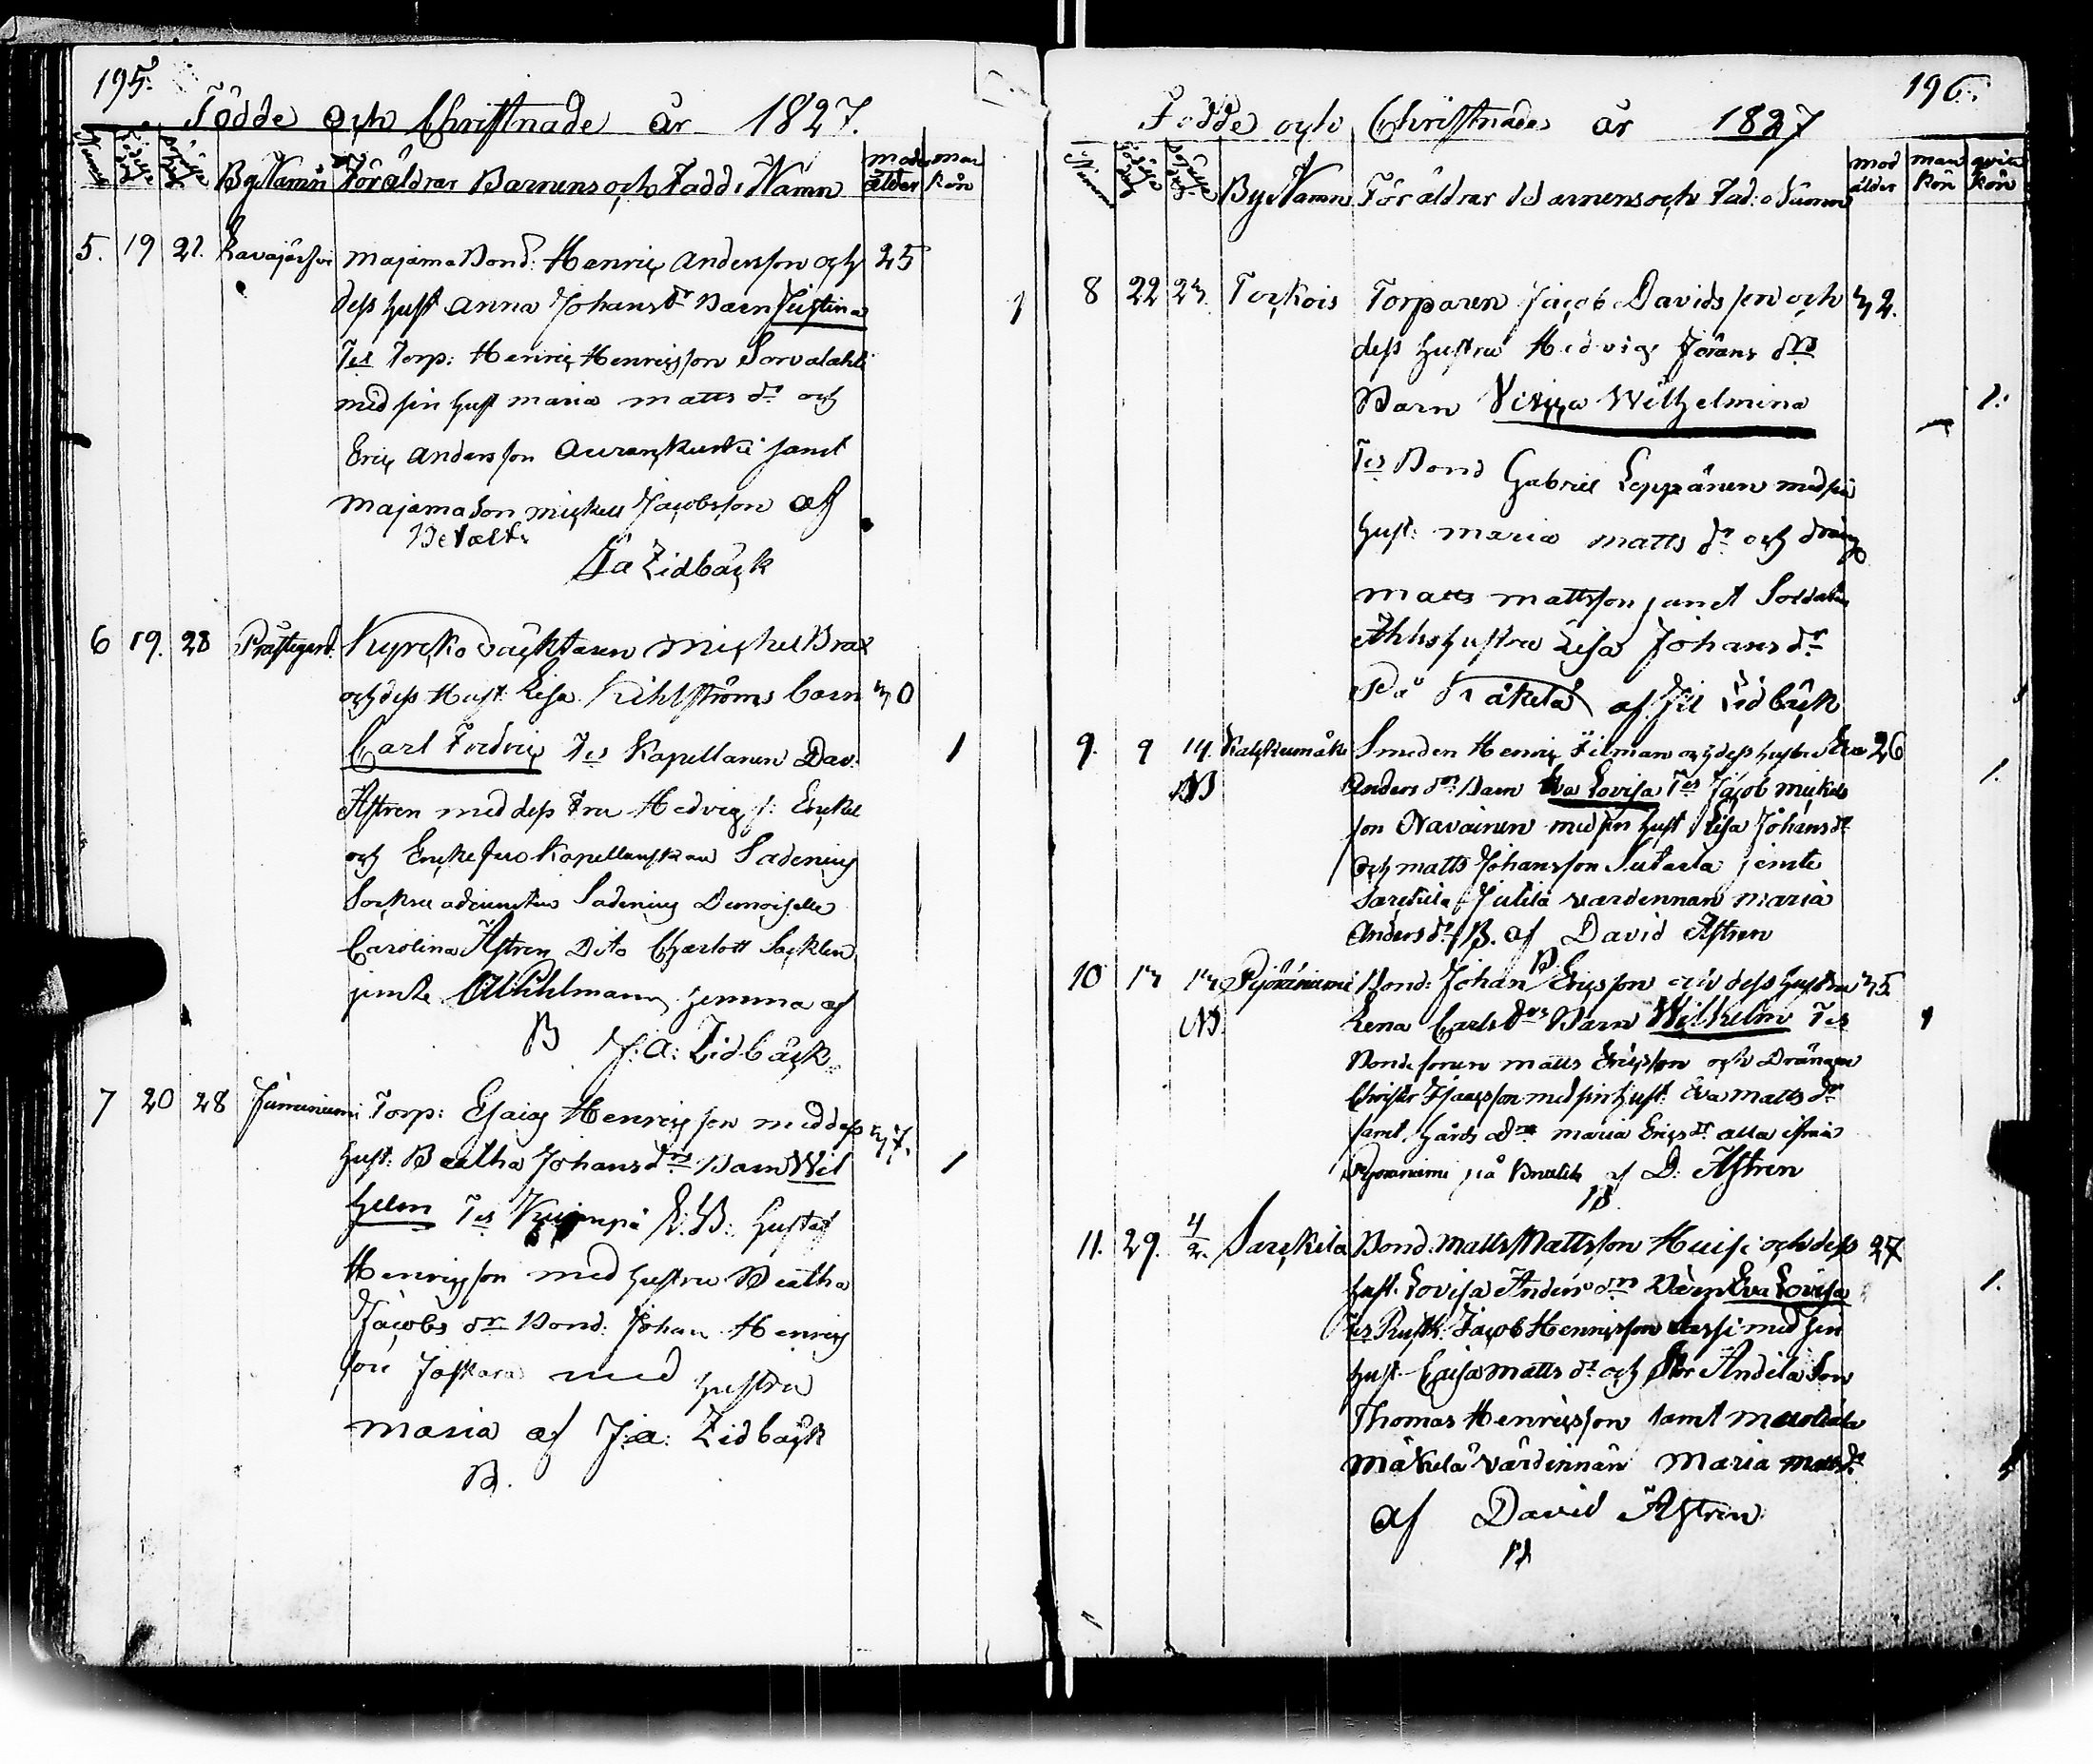 195.
Födde och Christnade år 1827.
Numer Födelse dag Döpelse dag By Namn Föräldrar Barnens och Fadd: Namn mod: ålder man kön
5. 19 21. Ravajärfvi majama Bond: Henric Andersson och 25
dess hust Anna Johansdr Barn Justina 1
Tes Torp: Henric Henricsson Sorvalahti
med sin hust maria matts dr och
Eric Andersson samt
majama Son mickell Jacobsson af
Betalt
J a Lidbäck
6 19. 28 Prästegård. Kyrcko vacktaren Michel Brax
och dess Hust: Lisa Kihlströms barn 30
Carl Fredric Tes Kapellanen Dav: 1
Astren med dess Fru Hedvig f: Enckel
och Enckefru Kapellanskan Sadenius
Sockne adiunctus Sadenius Demoiselle
Carolina Astren Dito Charlott Sacklen
jemte Wihlmann hemma af
B J: A: Lidbäck.
7 20 28 Torp: Esaias Henricsson med dess 37.
hust: Beatha Johansdrs Barn Wil 1
helm Tes R: B: Gustaf
Henricsson med hustru Beatha
Jacobs dr Bond: Johan Henrics
son Jaskara med hustru
maria af J: a: Lidbäck
B.
196.
Födde och Christnade år 1827
Numer Födelse dag Döpelse dag By Namn Föräldrar Barnens och Fad: Namn mod ålder man kön qvin kön
8 22 23. Torkois Torparen Jacob Davidsson och 32.
dess hustru Hedvig Jörans drs
Barn Wilhelmina 1.
Tes Bond Gabriel Leppänen med sin
hust: maria matts dr och dräng
matts mattsson samt Soldatens
hustru Lisa Johans dr
På af Lidbäck
9. 9 14. Smeden Henric Filman och dess hustru Eva 26
NB Anders drs Barn Eva Lovisa Tes Jacob mickels 1.
son Navainen med sin hust Lisa Johans dr
och matts Johansson Sutarla jemte
Sarckila Jutila värdennan maria
Anders dr. B. af David Astren
10 13 13 Pyöräniemi Bond: Johan Ericsson och dess hustru 35.
NB. Lena Carls drs Barn Wilhelm Tes 1
B.
Bondesonen matts Ericsson och Drängen
Christer Isaacsson med sin hust: Eva matts dr
samt maria Erics dr alla ifrån
Pyöräniemi på af D: Astren
B.
11. 29. 4/2. Sarckila Bond. Matts Mattsson Huisi och dess 27
hust. Lovisa Anders drs Barn Eva Lovisa 1.
Tes Rusth: Jacob Henricsson med sin
hust- Caisa Matts dr och Stor Andila Son
Thomas Henricsson samt
Mäkelä värdinnan Maria matts dr
af David Astren
B